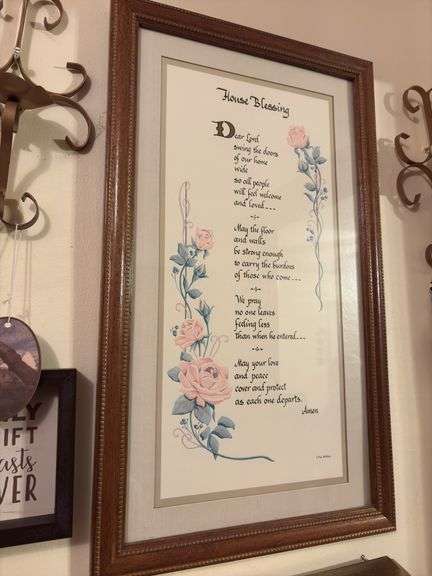 House Blessing
Dear Lord
swing the doors
of our home
wide
so all people
will feel welcome
and loved---
May the floor
and walls
be strong enough
to carry the burdens
of those who come---
We pray
no one leaves
feeling less
than when he entered---
May your love
and peace
cover and protect
as each one departs.
Amen
LY
IFT
asts
VER